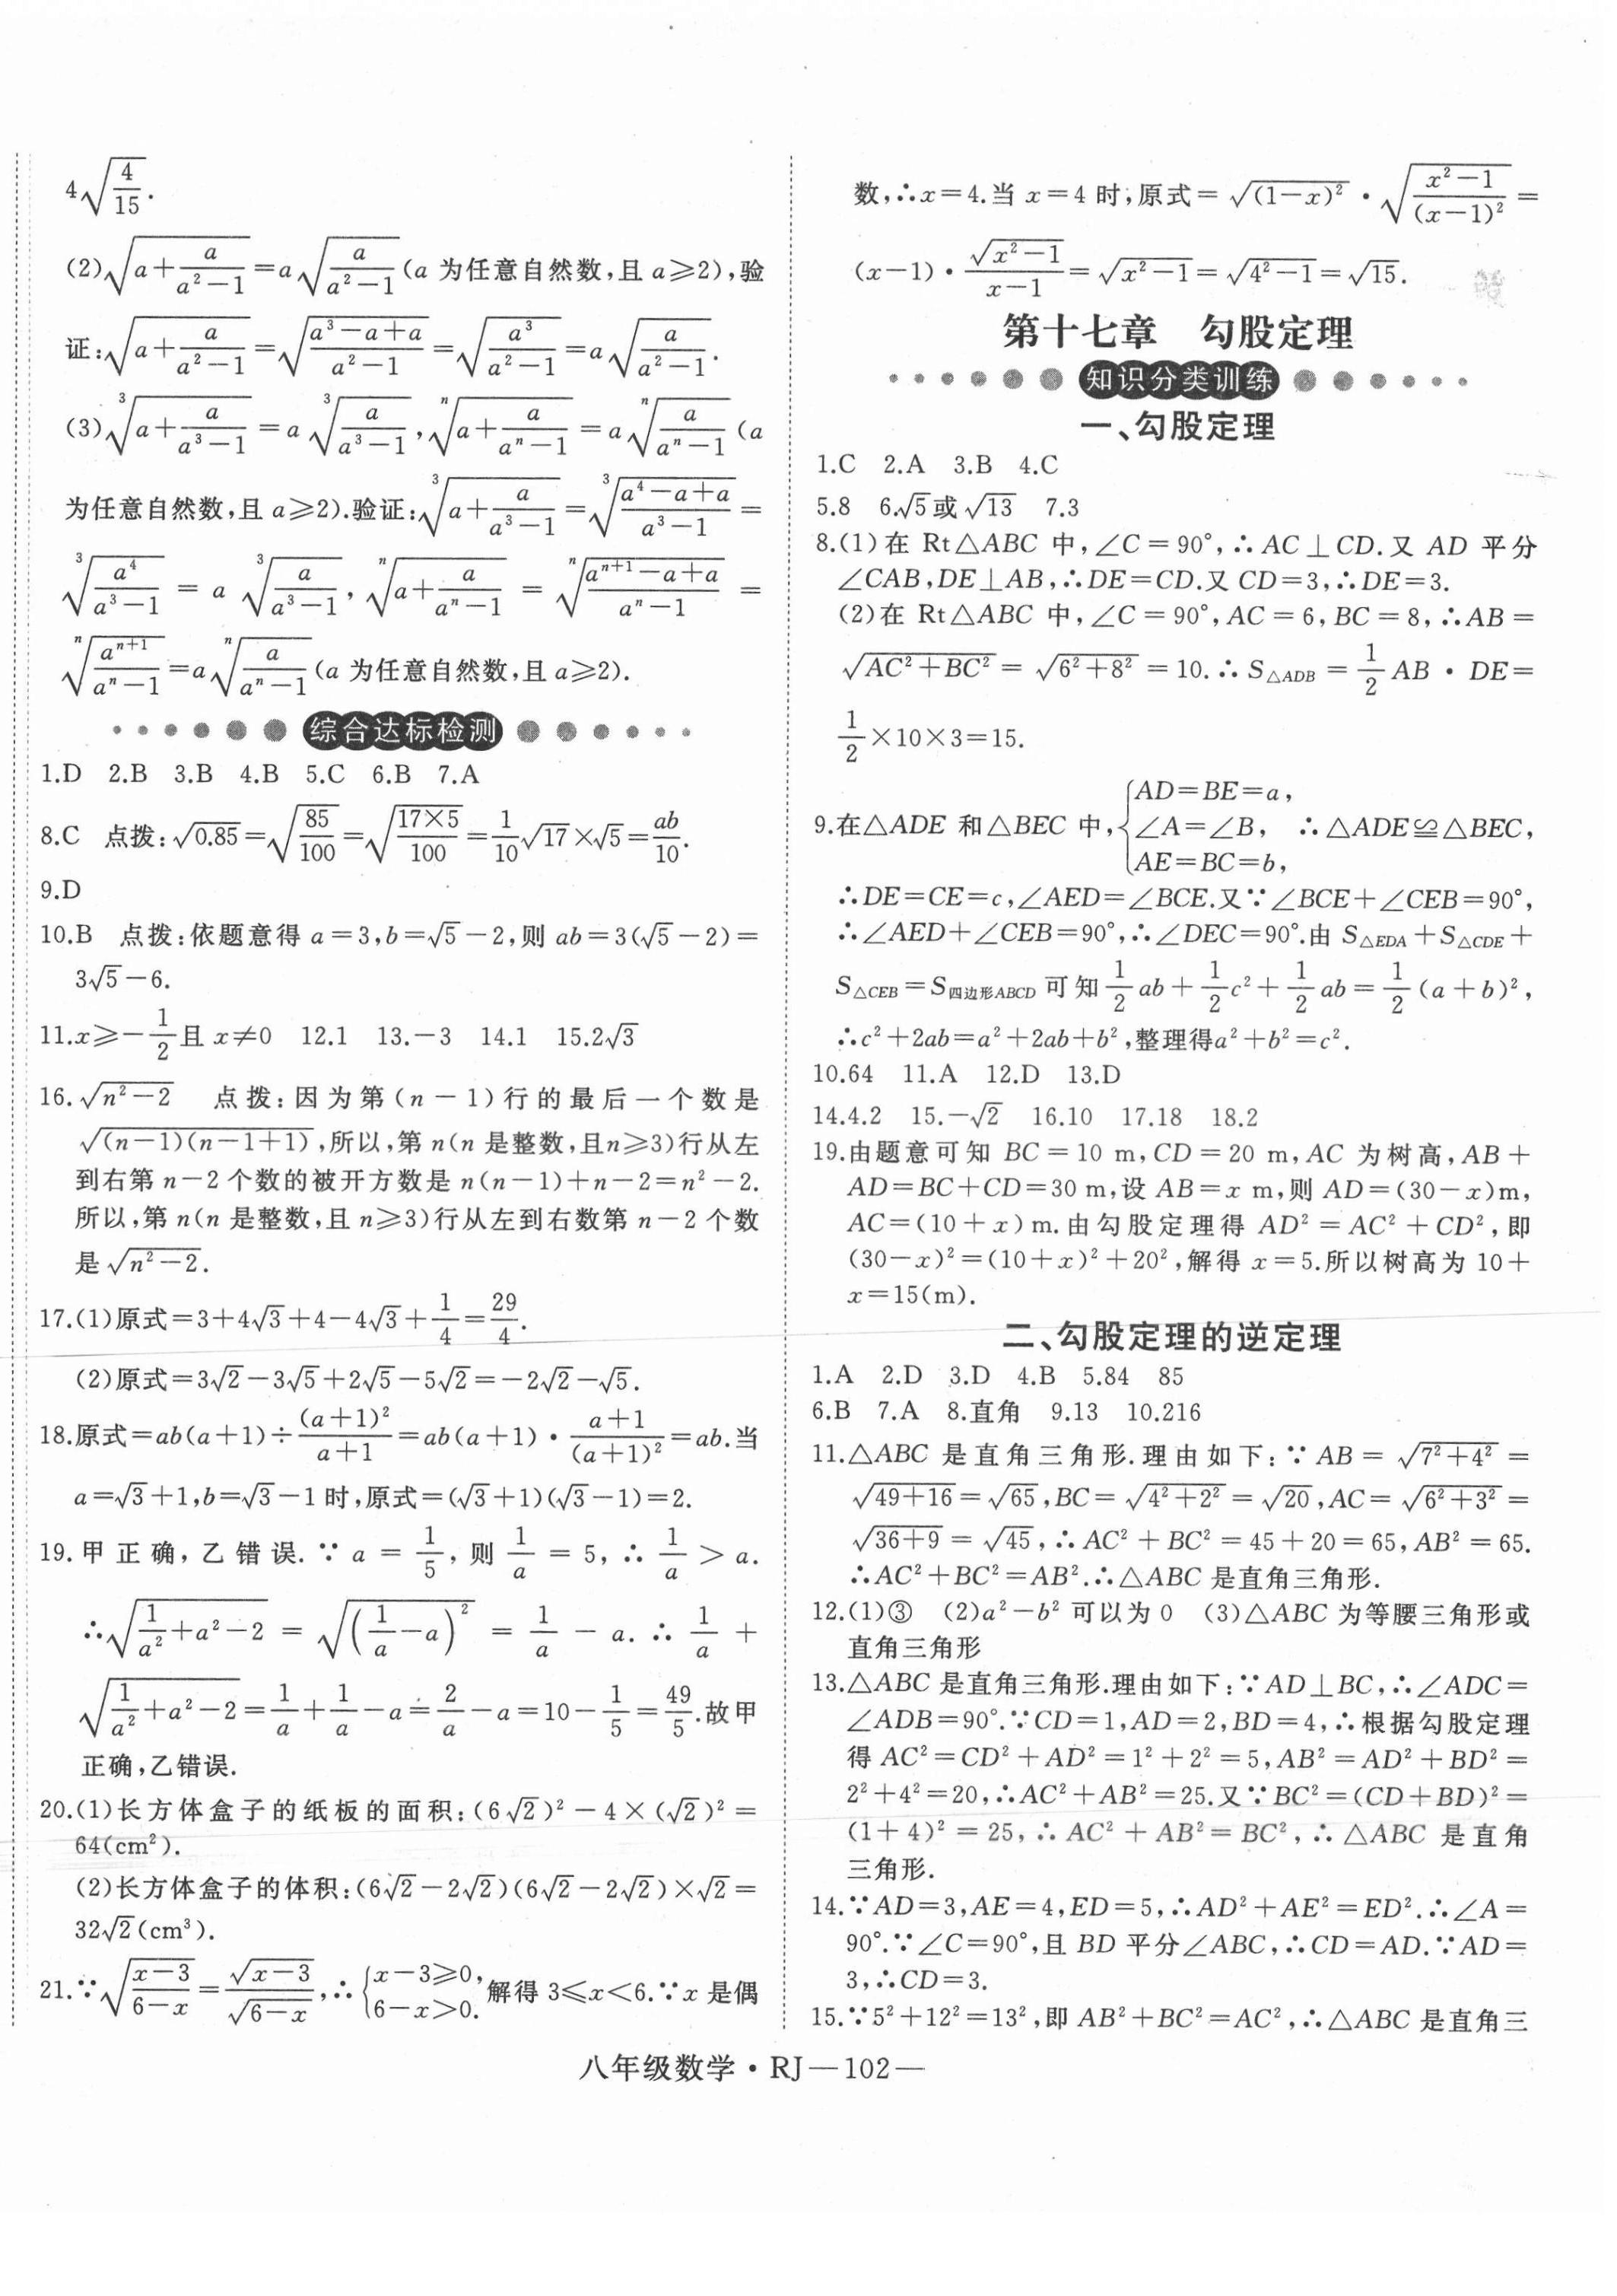 4√(4/15).
(2)√(a+a/(a²−1))=a√(a/(a²−1))(a 为任意自然数,且 a≥2),验
证:√(a+a/(a²−1))=√((a³−a+a)/(a²−1))=√(a³/(a²−1))=a√(a/(a²−1)).
(3)∛(a+a/(a³−1))=a∛(a/(a³−1)),ⁿ√(a+a/(aⁿ−1))=aⁿ√(a/(aⁿ−1))(a
为任意自然数,且 a≥2).验证:∛(a+a/(a³−1))=∛((a⁴−a+a)/(a³−1))=
∛(a⁴/(a³−1))=a∛(a/(a³−1)),ⁿ√(a+a/(aⁿ−1))=ⁿ√((aⁿ⁺¹−a+a)/(aⁿ−1))=
ⁿ√(aⁿ⁺¹/(aⁿ−1))=aⁿ√(a/(aⁿ−1))(a 为任意自然数,且 a≥2).
综合达标检测
1.D 2.B 3.B 4.B 5.C 6.B 7.A
8.C 点拨:√0.85=√(85/100)=√((17×5)/100)=1/10√17×√5=ab/10.
9.D
10.B 点拨:依题意得 a=3,b=√5−2,则 ab=3(√5−2)=
3√5−6.
11.x≥−1/2且 x≠0 12.1 13.−3 14.1 15.2√3
16.√(n²−2) 点拨:因为第(n−1)行的最后一个数是
√((n−1)(n−1+1)),所以,第 n(n 是整数,且n≥3)行从左
到右第 n−2 个数的被开方数是 n(n−1)+n−2=n²−2.
所以,第 n(n 是整数,且 n≥3)行从左到右数第 n−2 个数
是√(n²−2).
17.(1)原式=3+4√3+4−4√3+1/4=29/4.
(2)原式=3√2−3√5+2√5−5√2=−2√2−√5.
18.原式=ab(a+1)÷(a+1)²/(a+1)=ab(a+1)·(a+1)/(a+1)²=ab.当
a=√3+1,b=√3−1 时,原式=(√3+1)(√3−1)=2.
19.甲正确,乙错误.∵a=1/5,则1/a=5,∴1/a>a.
∴√(1/a²+a²−2)=√((1/a−a)²)=1/a−a.∴1/a+
√(1/a²+a²−2)=1/a+1/a−a=2/a−a=10−1/5=49/5.故甲
正确,乙错误.
20.(1)长方体盒子的纸板的面积:(6√2)²−4×(√2)²=
64(cm²).
(2)长方体盒子的体积:(6√2−2√2)(6√2−2√2)×√2=
32√2(cm³).
21.∵√((x−3)/(6−x))=√(x−3)/√(6−x),∴{x−3≥0,6−x>0.解得 3≤x<6.∵x 是偶
数,∴x=4.当 x=4 时,原式=√((1−x)²)·√((x²−1)/(x−1)²)=
(x−1)·√(x²−1)/(x−1)=√(x²−1)=√(4²−1)=√15.
第十七章 勾股定理
知识分类训练
一、勾股定理
1.C 2.A 3.B 4.C
5.8 6.√5或√13 7.3
8.(1)在 Rt△ABC 中,∠C=90°,∴AC⊥CD.又 AD 平分
∠CAB,DE⊥AB,∴DE=CD.又 CD=3,∴DE=3.
(2)在 Rt△ABC 中,∠C=90°,AC=6,BC=8,∴AB=
√(AC²+BC²)=√(6²+8²)=10.∴S△ADB=1/2AB·DE=
1/2×10×3=15.
9.在△ADE 和△BEC 中,{AD=BE=a,∠A=∠B,AE=BC=b,∴△ADE≌△BEC,
∴DE=CE=c,∠AED=∠BCE.又∵∠BCE+∠CEB=90°,
∴∠AED+∠CEB=90°,∴∠DEC=90°.由 S△EDA+S△CDE+
S△CEB=S四边形ABCD 可知1/2ab+1/2c²+1/2ab=1/2(a+b)²,
∴c²+2ab=a²+2ab+b²,整理得a²+b²=c².
10.64 11.A 12.D 13.D
14.4.2 15.−√2 16.10 17.18 18.2
19.由题意可知 BC=10 m,CD=20 m,AC 为树高,AB+
AD=BC+CD=30 m,设 AB=x m,则 AD=(30−x)m,
AC=(10+x)m.由勾股定理得 AD²=AC²+CD²,即
(30−x)²=(10+x)²+20²,解得 x=5.所以树高为 10+
x=15(m).
二、勾股定理的逆定理
1.A 2.D 3.D 4.B 5.84 85
6.B 7.A 8.直角 9.13 10.216
11.△ABC 是直角三角形.理由如下:∵AB=√(7²+4²)=
√(49+16)=√65,BC=√(4²+2²)=√20,AC=√(6²+3²)=
√(36+9)=√45,∴AC²+BC²=45+20=65,AB²=65.
∴AC²+BC²=AB².∴△ABC 是直角三角形.
12.(1)③ (2)a²−b² 可以为 0 (3)△ABC 为等腰三角形或
直角三角形
13.△ABC 是直角三角形.理由如下:∵AD⊥BC,∴∠ADC=
∠ADB=90°.∵CD=1,AD=2,BD=4,∴根据勾股定理
得 AC²=CD²+AD²=1²+2²=5,AB²=AD²+BD²=
2²+4²=20,∴AC²+AB²=25.又∵BC²=(CD+BD)²=
(1+4)²=25,∴AC²+AB²=BC²,∴△ABC 是直角
三角形.
14.∵AD=3,AE=4,ED=5,∴AD²+AE²=ED².∴∠A=
90°.∵∠C=90°,且 BD 平分∠ABC,∴CD=AD.∵AD=
3,∴CD=3.
15.∵5²+12²=13²,即 AB²+BC²=AC²,∴△ABC 是直角三
八年级数学·RJ—102—